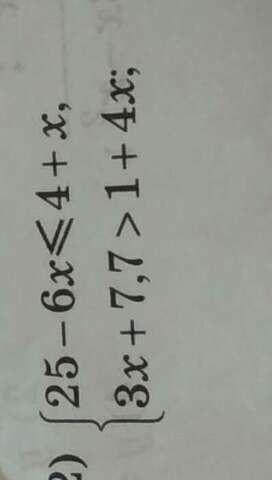 2) { 25 − 6x ⩽ 4 + x,
3x + 7,7 > 1 + 4x;